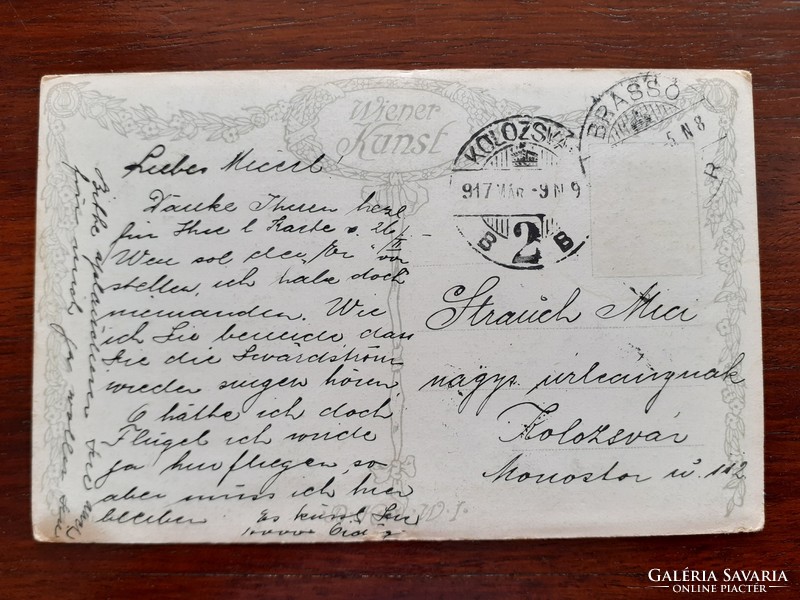 Wiener
Kunst
KOLOZSVÁ
917 MÁR -9 N 9
B 2 B
BRASSÓ
5 N 8
R
Liebes Miezerl!
Danke Ihnen herzl
für Ihre l. Karte v. 26/II
Wen sol der vor
stellen, ich habe doch
niemanden. Wie
ich Sie beneide das
Sie die Swardström
wieder singen hören.
O hätte ich doch
Flügel ich würde
ja hinfliegen, so
aber muss ich hier
bleiben
Es küsst Sie
Bitte applaudieren Sie
für mich
Strauch Mici
nagys. úrleánynak
Kolozsvár
Monostor ú. 112
GALÉRIA SAVARIA
ONLINE PIACTÉR